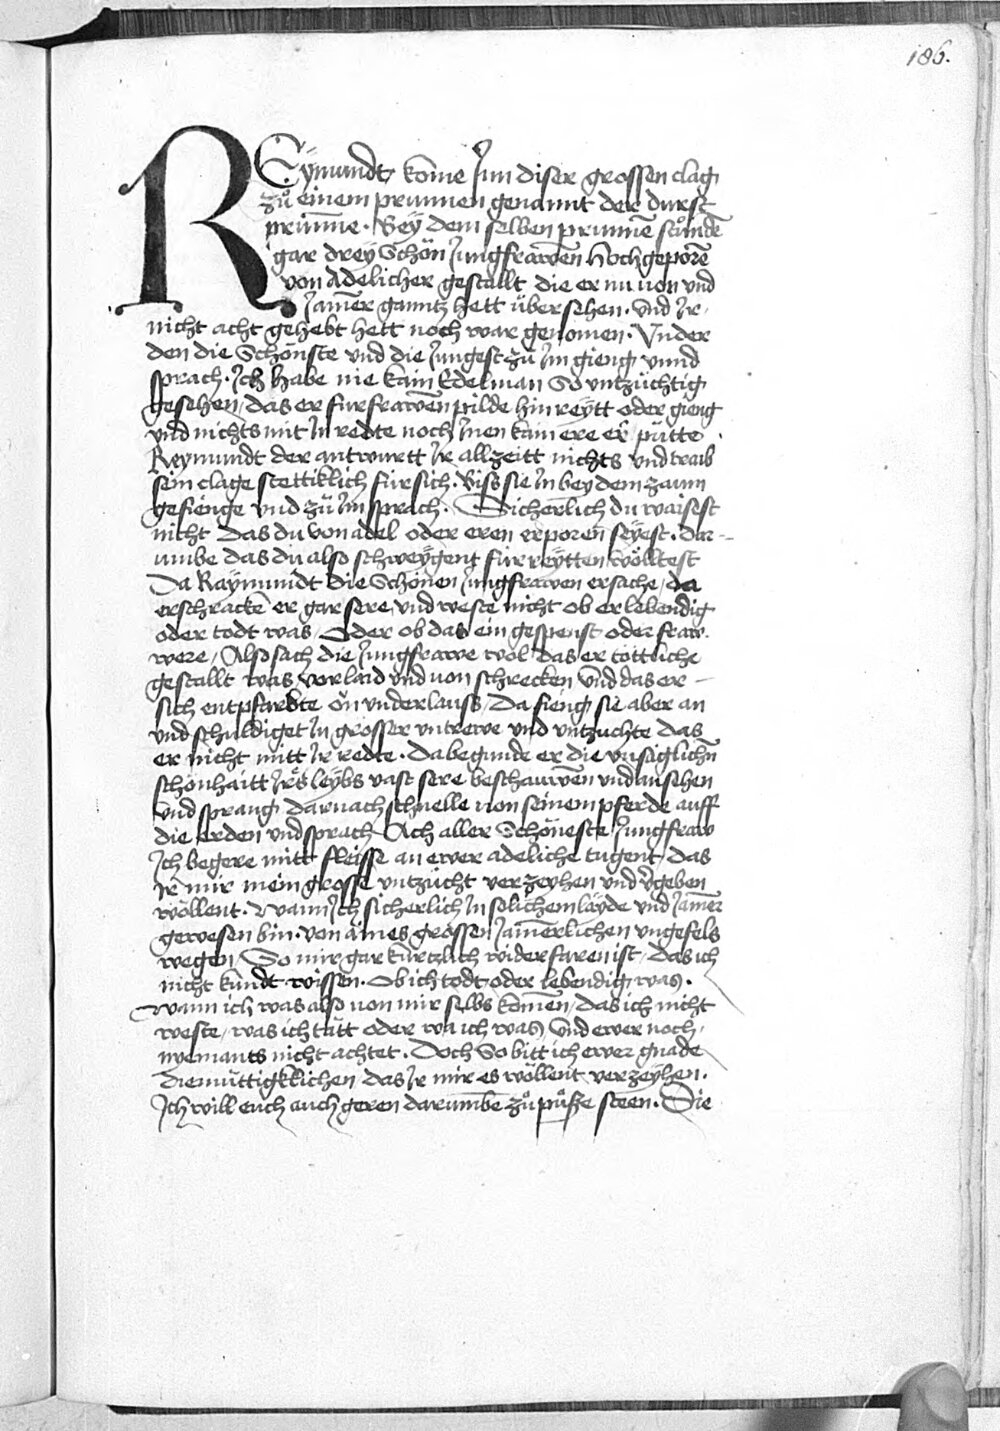 186.
REÿmundt kome Jnn diser grossen clag
zů einem prunnen genannt der durst
prunne. Beÿ dem selben prunnē stůnden
gar dreÿ Schön Jungfrawen Hochgeporē
von Adelicher gestallt die er nu von und
Jamer ganntz hett übersehen. und Jr
nicht acht gehebt hett noch war genomen. Vnder
den die Schönste vnd die Jungest zů Jm gieng vnnd
sprach. Jch habe nie kain Edelman So vntzüchtig
gesehen, das er für frawen pilde hin reÿtt oder gieng
vnd nichts mit Jn redte noch Jnen kain ere er pütte
Reymundt der antwurtt Jr allzeitt nichts vnd traib
sein clage stettiklich für sich. Biss sie Jn bey dem zaum
gefienge vnd zů Jm sprach. Sicherlich du waisest
nicht das du von adel oder eren erporen seÿest. dar-
umbe das du also schweÿgent für reÿtten wölltest
Da Raÿmundt die Schönen Jungfrawen ersache, da
erschrackē er gar sere, vnd weste nicht ob er lebendig
oder todt was, Oder ob das ein gespenst oder fraw
were, Also sach die Jungfrawe wol das er töttliche
gestallt was, vor laid vnd von schrecken vnd das er
sich entpfarbte on vnderlauss, Da fieng sie aber an
vnd schuldiget Jn grosser vntrewe vnd vntzuchte das
er nicht mitt Jr redte. Da begunde er die vnsäglichn
schönhaitt Jrs leÿbs vast sere beschauwen vnd ansehen
vnd sprang darnach schnelle von seinem pferde auff
die erden vnd sprach Ach aller Schöneste Jungfraw
Jch begere mitt fleisse an ewer adeliche tugent, das
Jr mir mein grosse vntzücht verzeyhen vnd v̄geben
wöllent. wann Jch sicherlich Jn solichem laÿde vnd Jamer
gewesen bin. von aines grossen Jamerlichen vngefels
wegen, So mir gar kürtzlich widerfaren ist, das ich
nicht kundt wissen. Ob ich todt oder lebendig was.
wann ich was also von mir selbs komen, das ich nicht
weste, was ich tätt oder wa ich was, vnd ewer noch
nyemants nicht achtet. Doch So bitt ich ewer gnade
diemüttigklichen das Jr mir es wöllent verzeÿhen.
Jch will euch auch geren darumbe zů půsse steen. Sie